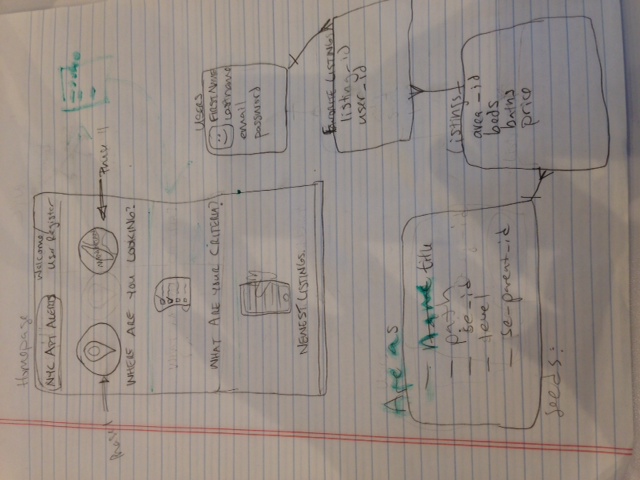 Homepage
NYC APT ALERTS
Welcome/
User Register
Phase I
Phase II
WHERE ARE YOU LOOKING?
WHAT ARE YOUR CRITERIA?
NEWEST LISTINGS.
USERS
FIRST NAME
Lastname
email
password
FAVORITE LISTINGS
listing_id
user_id
Areas
— Name title
— path
— se_id
— level
— se-parent_id
Seeds:
Listings
area_id
beds
baths
price